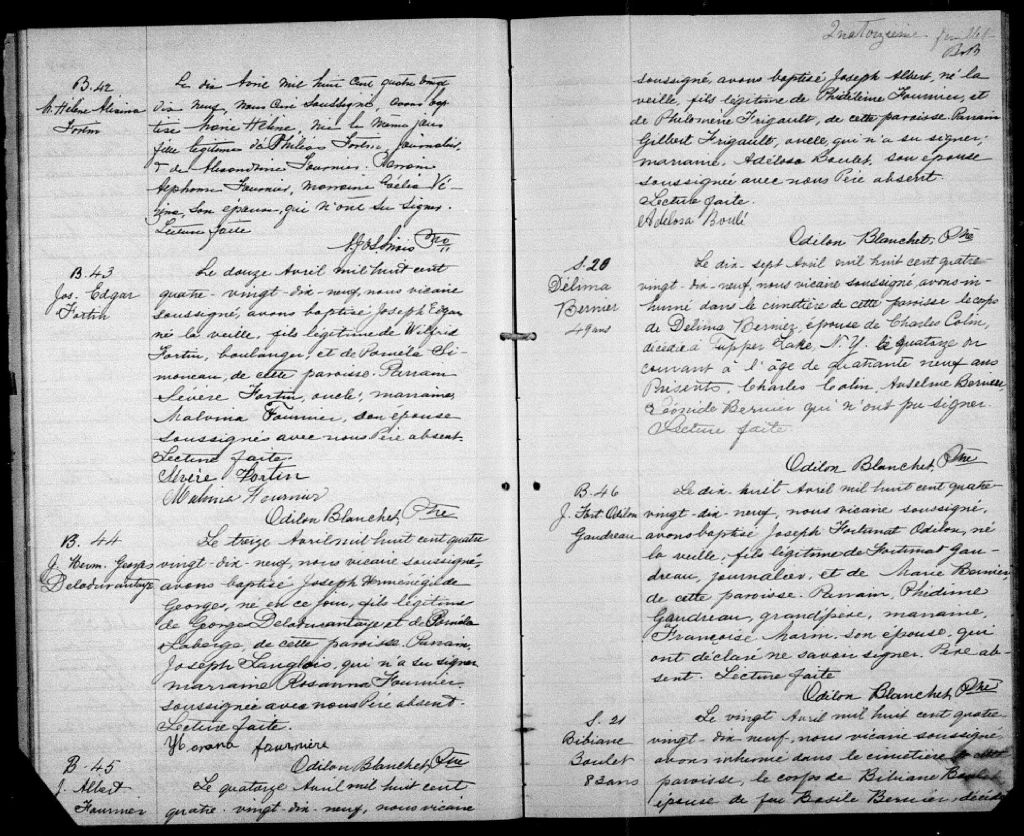 B. 42
M. Hélène Alexina
Fortin
Le dix Avril mil huit cent quatre vingt
dix neuf, nous Curé soussigné, avons bap
tisé Marie Hélène, née le même jour
fille légitime de Philéas Fortin, journalier,
& de Alexandrine Fournier. Parrain
Alphonse Fournier, marraine Vé-
zina, son épouse, qui n'ont su signer.
Lecture faite
Ptre
B. 43
Jos. Edgar
Fortin
Le douze Avril mil huit cent
quatre-vingt-dix-neuf, nous vicaire
soussigné, avons baptisé Joseph Edgar
né la veille, fils légitime de Wilfrid
Fortin, boulanger, et de Paméla Si-
moneau, de cette paroisse. Parrain
Sévère Fortin, oncle, marraine,
Malvina Fournier, son épouse
soussignés avec nous Père absent.
Lecture faite.
Sévère Fortin
Malvina Fournier
Odilon Blanchet, Ptre
B. 44
J. Herm. Georges
Deladurantaye
Le treize Avril mil huit cent quatre
vingt-dix-neuf, nous vicaire soussigné,
avons baptisé Joseph Herménégilde
Georges, né en ce jour, fils légitime
de George Deladurantaye et de Paméla
Laberge, de cette paroisse. Parrain,
Joseph Langlois, qui n'a su signer
marraine Rosanna Fournier
soussignée avec nous Père absent.
Lecture faite.
Rosana fournière
Odilon Blanchet, Ptre
B. 45
J. Albert
Fournier
Le quatorze Avril mil huit cent
quatre-vingt-dix-neuf, nous vicaire
Quatorzième
B.B
soussigné, avons baptisé Joseph Albert, né la
veille, fils légitime de Philélème Fournier, et
de Philomène Frigault, de cette paroisse Parrain
Gilbert Frigault, oncle, qui n'a su signer,
marraine, Adélosa Boulet, son épouse
soussignée avec nous Père absent.
Lecture faite.
Adelosa Boulé
Odilon Blanchet, Ptre
S. 20
Délima
Bernier
49 ans
Le dix-sept Avril mil huit cent quatre
vingt-dix-neuf, nous vicaire soussigné, avons in-
humé dans le cimetière de cette paroisse le corps
de Délima Bernier, épouse de Charles Colin,
décédée à Tupper Lake, N.Y. le quatorze du
courant à l'âge de quarante neuf ans
Présents, Charles Colin, Anselme Bernier
Léonide Bernier qui n'ont pu signer.
Lecture faite.
Odilon Blanchet, Ptre
B. 46
J. Fort Odilon
Gaudreau
Le dix-huit Avril mil huit cent quatre-
vingt-dix-neuf, nous vicaire soussigné,
avons baptisé Joseph Fortunat Odilon, né
la veille, fils légitime de Fortunat Gau-
dreau, journalier, et de Marie Bernier
de cette paroisse. Parrain, Phidime
Gaudreau, grand père, marraine,
Françoise Morin, son épouse, qui
ont déclaré ne savoir signer. Père ab-
sent. Lecture faite
Odilon Blanchet, Ptre
S. 21
Bibiane
Boulet
83 ans
Le vingt Avril mil huit cent quatre
vingt-dix-neuf, nous vicaire soussigné
avons inhumé dans le cimetière de cette
paroisse, le corps de Bibiane Boulet
épouse de feu Basile Bernier, décédé